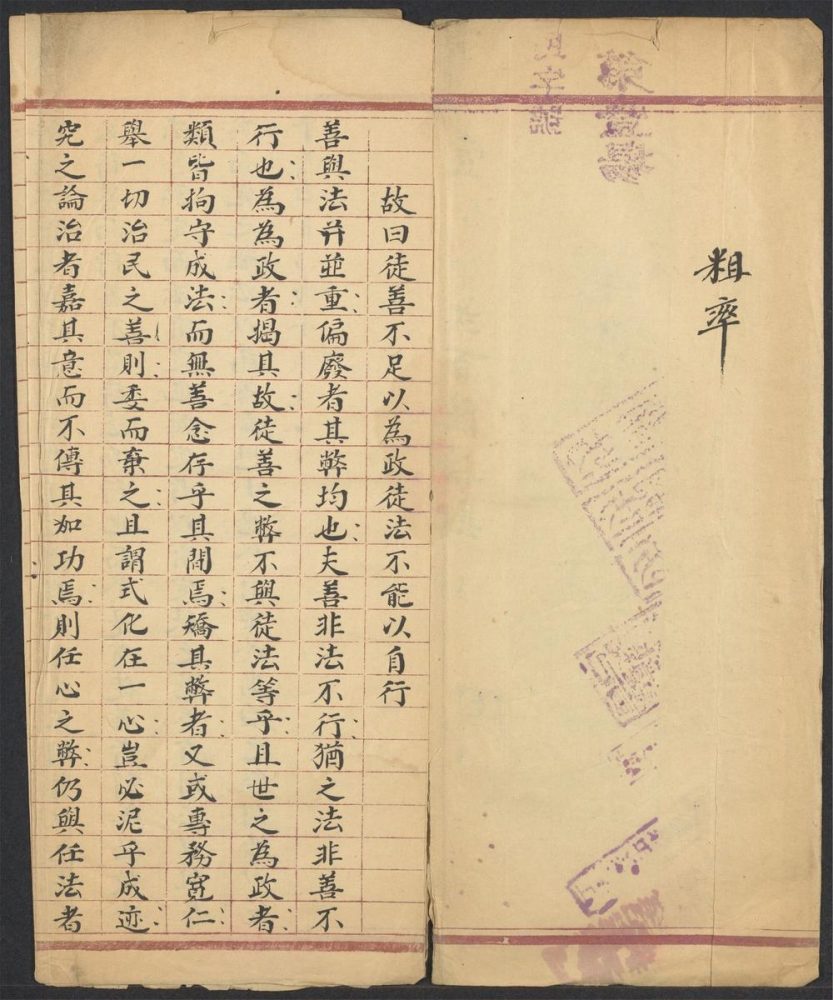 粗率
故曰徒善不足以為政徒法不能以自行
善與法并並重偏廢者其弊均也夫善非法不行猶之法非善不
行也為為政者揭其故徒善之弊不與徒法等乎且世之為政者
類皆拘守成法而無善念存乎其間焉矯其弊者又或專務寬仁
舉一切治民之善則委而棄之且謂式化在一心豈必泥乎成迹
究之論治者嘉其意而不傳其加功焉則任心之弊仍與任法者